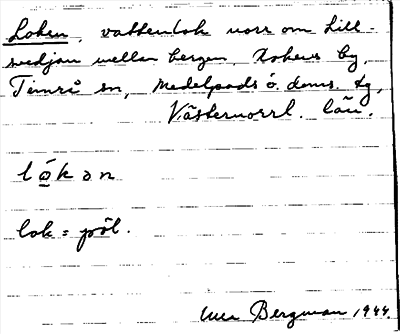 Loken, vattenlok norr om Lill-
svedjan mellan bergen, Lokens by,
Timrå sn, Medelpads ö. doms. tg,
Västernorrl. län.
lókən
lok = pöl.
Bergman 1944.